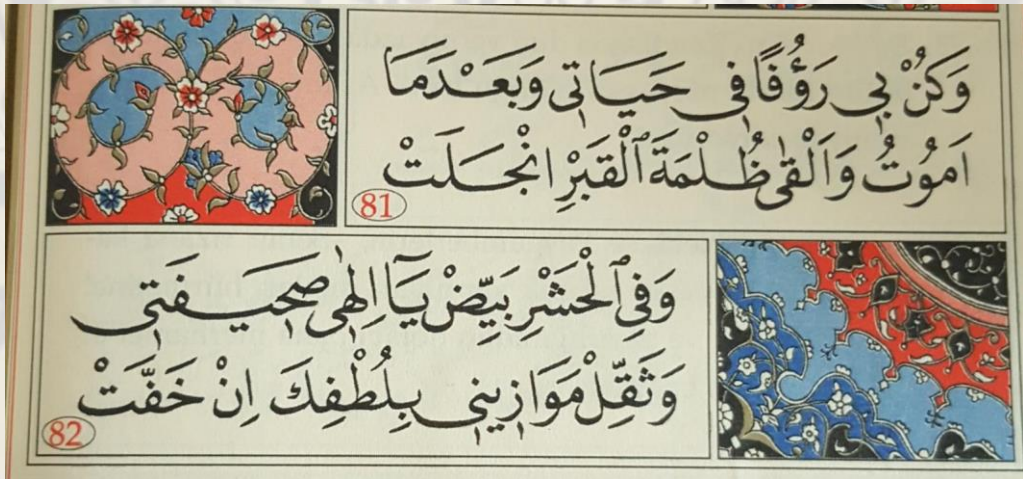 وَكُنْ بِي رَؤُفًا فِي حَيَاتِي وَبَعْدَمَا
اَمُوتُ وَاَلْقٰى ظُلْمَةَ الْقَبْرِ انْجَلَتْ
81
وَفِي الْحَشْرِ بَيِّضْ يَآ اِلٰهِى صَحِيفَتِى
وَثَقِّلْ مَوَازِينِي بِلُطْفِكَ اِنْ خَفَّتْ
82